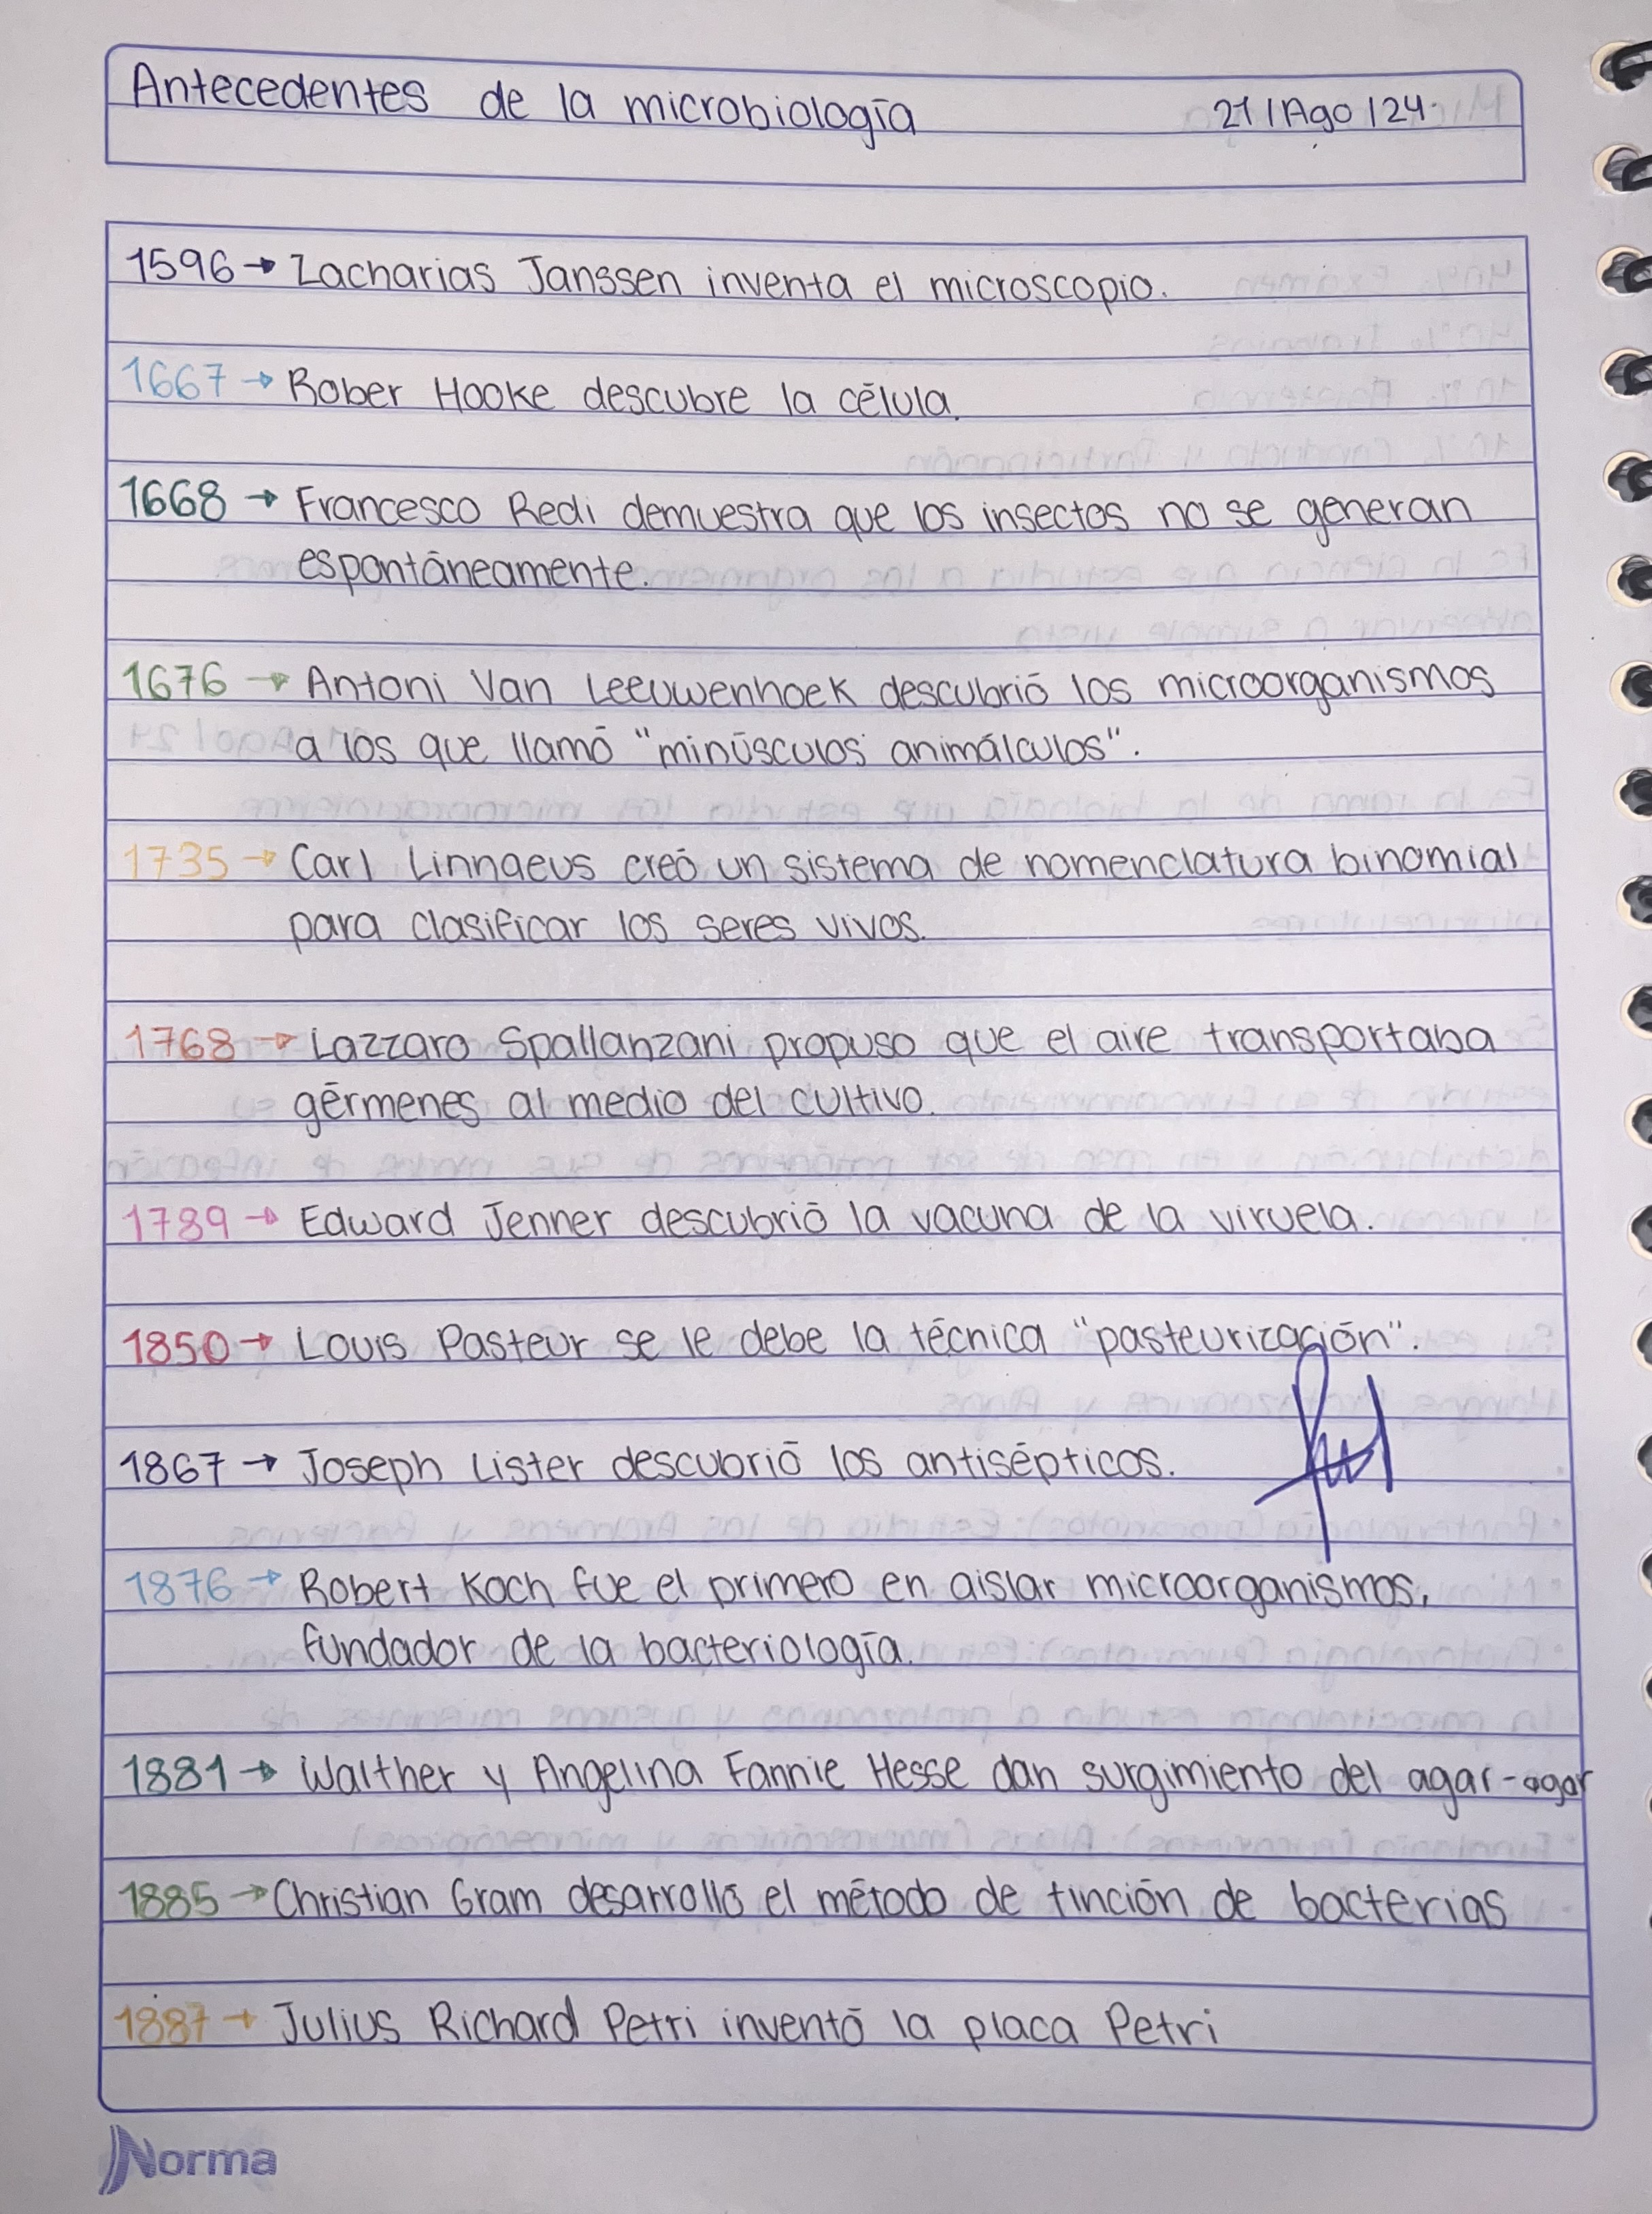 Antecedentes de la microbiología 21/Ago/24
1596→ Zacharias Janssen inventa el microscopio.
1667→ Rober Hooke descubre la célula.
1668→ Francesco Redi demuestra que los insectos no se generan
espontáneamente.
1676→ Antoni Van Leeuwenhoek descubrió los microorganismos
a los que llamó "minúsculos animálculos".
1735→ Carl Linnaeus creó un sistema de nomenclatura binomial
para clasificar los seres vivos.
1768→ Lazzaro Spallanzani propuso que el aire transportaba
gérmenes al medio del cultivo.
1789→ Edward Jenner descubrió la vacuna de la viruela.
1850→ Louis Pasteur se le debe la técnica "pasteurización".
1867→ Joseph Lister descubrió los antisépticos.
1876→ Robert Koch fue el primero en aislar microorganismos,
fundador de la bacteriología.
1881→ Walther y Angelina Fannie Hesse dan surgimiento del agar-agar
1885→ Christian Gram desarrolló el método de tinción de bacterias
1887→ Julius Richard Petri inventó la placa Petri
Norma